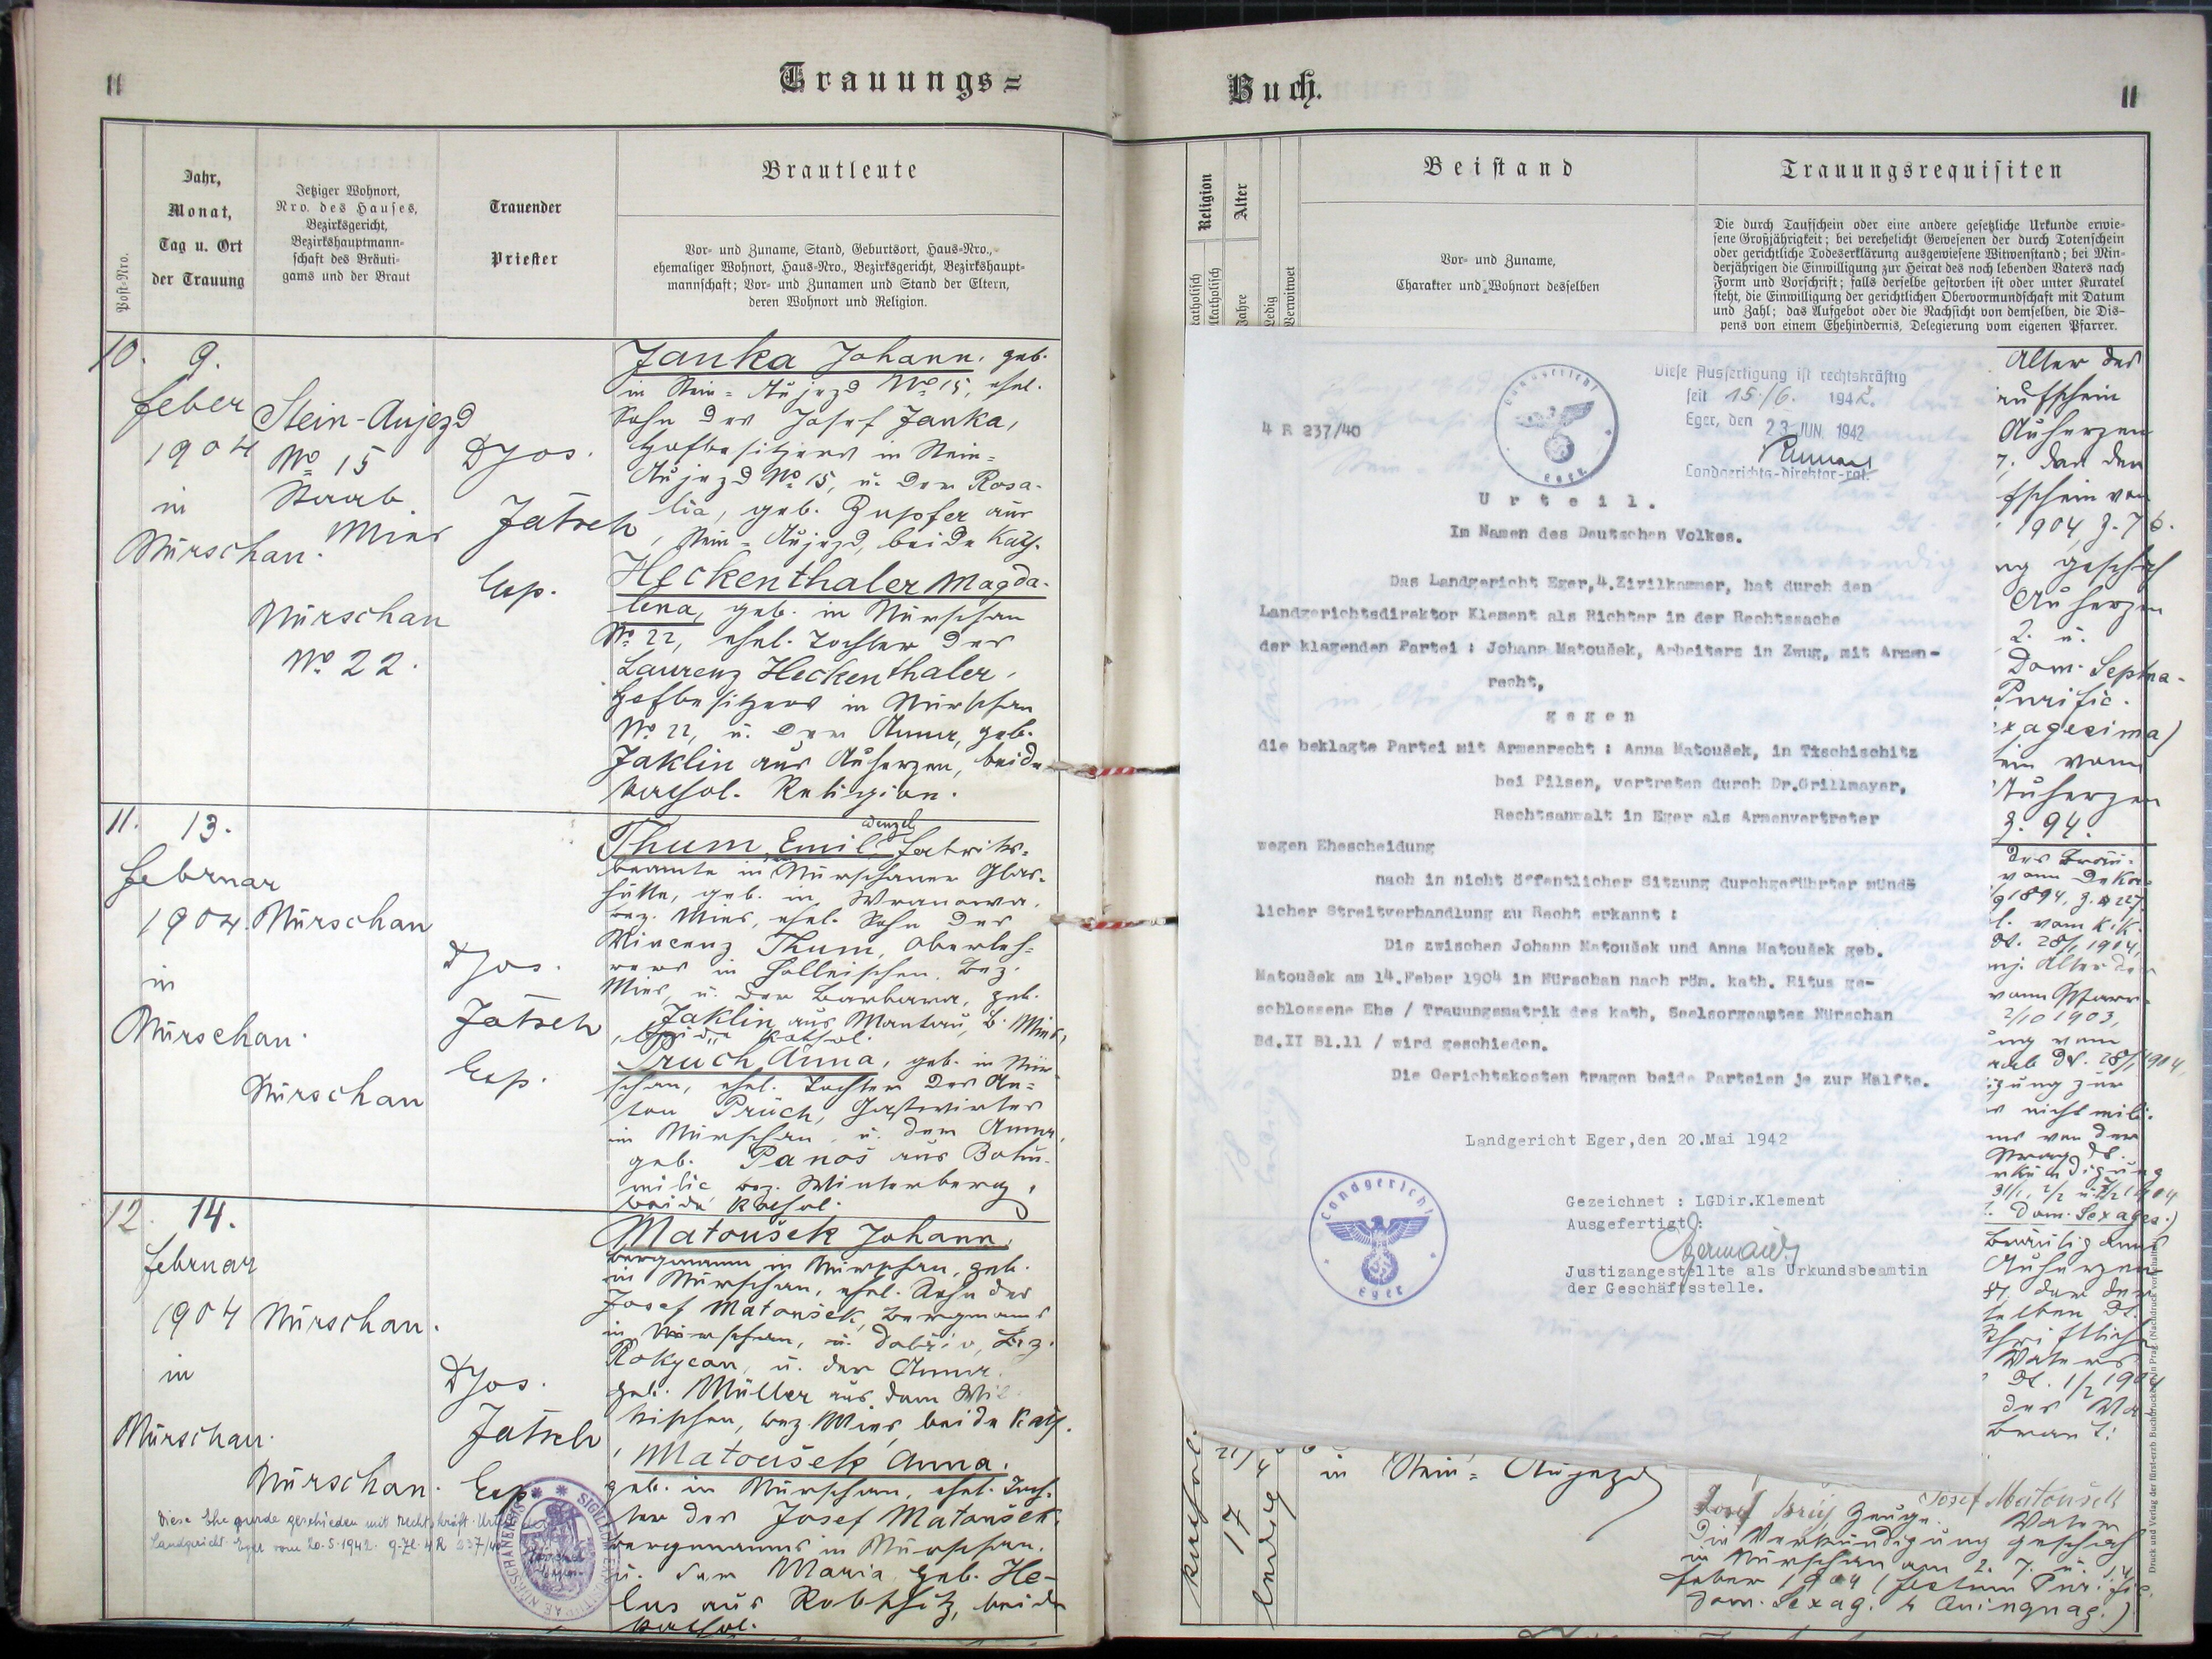 11
Trauungs=
Post-Nro.
Jahr,
Monat,
Tag u. Ort
der Trauung
Jetziger Wohnort,
Nro. des Hauses,
Bezirksgericht,
Bezirkshauptmann=
schaft des Bräuti=
gams und der Braut
Trauender
Priester
Brautleute
Vor= und Zuname, Stand, Geburtsort, Haus=Nro.,
ehemaliger Wohnort, Haus=Nro., Bezirksgericht, Bezirkshaupt=
mannschaft; Vor= und Zunamen und Stand der Eltern,
deren Wohnort und Religion.
10.
9.
feber
1904
in
Nürschan.
Stein-Aujezd
No 15
Staab
Mies
Nürschan
No 22.
P Jos.
Jatsch
Exp.
Janka Johann, geb.
in Stein=Aujezd No 15, ehel.
Sohn des Josef Janka,
Hofbesitzers in Stein=
Aujezd No 15, u. der Rosa=
lia, geb. Zupfer aus
Stein=Aujezd, beide kath.
Heckenthaler Magda=
lena, geb. in Nürschan
No 22, ehel. Tochter des
Laurenz Heckenthaler,
Hofbesitzers in Nürschan
No 22, u. der Anna, geb.
Jaklin aus Auherzen, beide
kathol. Religion.
11.
13.
februar
1904
in
Nürschan.
Nürschan
Nürschan
P Jos.
Jatsch
Exp.
wenzel
Thum Emil, Fabriks=
beamte in Nürschaner Glas=
hütte, geb. in Wranowa,
bez. Mies, ehel. Sohn des
Vincenz Thum, Oberleh=
rers in Holleischen, Bez.
Mies, u. der Barbara, geb.
Jaklin aus Mantau, B. Mies,
beide kathol.
Pruch Anna, geb. in Nür=
schan, ehel. Tochter des An=
ton Pruch, Gastwirtes
in Nürschan, u. der Anna,
geb. Panoš aus Bohu=
milic bez. Winterberg,
beide kathol.
12.
14.
februar
1904
in
Nürschan.
Nürschan.
Nürschan.
P Jos.
Jatsch
Exp.
Matoušek Johann,
Bergmann in Nürschan, geb.
in Nürschan, ehel. Sohn des
Josef Matoušek, Bergmanns
in Nürschan, u. Dobřiv, Bez.
Rokycan, u. der Anna,
geb. Müller aus dem Wil
kischen, bez. Mies, beide kath.
Matoušek Anna,
geb. in Nürschan, ehel. Toch=
ter des Josef Matoušek,
Bergmanns in Nürschan,
u. der Maria geb. He=
lus aus Robschitz, beide
kathol.
Diese Ehe wurde geschieden mit rechtskräft. Urt
Landgericht Eger vom 20.5.1942. g.Zl. 4 R 237/40
Buch.
11
Religion
Alter
Jahre
Ledig
Verwitwet
Beistand
Vor= und Zuname,
Charakter und Wohnort desselben
Trauungsrequisiten
Die durch Taufschein oder eine andere gesetzliche Urkunde erwie=
sene Großjährigkeit; bei verehelicht Gewesenen der durch Totenschein
oder gerichtliche Todeserklärung ausgewiesene Witwenstand; bei Min=
derjährigen die Einwilligung zur Heirat des noch lebenden Vaters nach
Form und Vorschrift; falls derselbe gestorben ist oder unter Kuratel
steht, die Einwilligung der gerichtlichen Obervormundschaft mit Datum
und Zahl; das Aufgebot oder die Nachsicht von demselben, die Dis=
pens von einem Ehehindernis, Delegierung vom eigenen Pfarrer.
4 R 237/40
Landgericht
Eger
Diese Ausfertigung ist rechtskräftig
seit 15./6. 1942.
Eger, den 23. JUN. 1942
Landgerichts-direktor-rat.
Urteil.
Im Namen des Deutschen Volkes.
Das Landgericht Eger,4.Zivilkammer, hat durch den
Landgerichtsdirektor Klement als Richter in der Rechtssache
der klagenden Partei : Johann Matoušek, Arbeiters in Zwug, mit Armen-
recht,
gegen
die beklagte Partei mit Armenrecht : Anna Matoušek, in Tischischitz
bei Pilsen, vertreten durch Dr.Grillmayer,
Rechtsanwalt in Eger als Armenvertreter
wegen Ehescheidung
nach in nicht öffentlicher Sitzung durchgeführter münd-
licher Streitverhandlung zu Recht erkannt :
Die zwischen Johann Matoušek und Anna Matoušek geb.
Matoušek am 14.Feber 1904 in Nürschan nach röm. kath. Ritus ge-
schlossene Ehe / Trauungsmatrik des kath. Seelsorgeamtes Nürschan
Bd.II Bl.11 / wird geschieden.
Die Gerichtskosten tragen beide Parteien je zur Hälfte.
Landgericht Eger,den 20.Mai 1942
Gezeichnet : LGDir.Klement
Ausgefertigt :
Justizangestellte als Urkundsbeamtin
der Geschäftsstelle.
Landgericht
Eger
Alter des
aufschein
Auherzen
7. dan den
fschein von
1904, Z. 76.
ng geschah
Auherzen
2. u.
Dom. Septua=
Purific.
exagesima)
ein vom
Auherzen
Z. 94.
kathol.
17
ledig
in Stein=Aujezd
Zeuge.
Josef Matoušek
Vater
Die Verkündigung geschah
in Nürschan am 2. 7. u. 14.
feber 1904 (festum Purific.
Dom. Sexag. & Quinquag.)